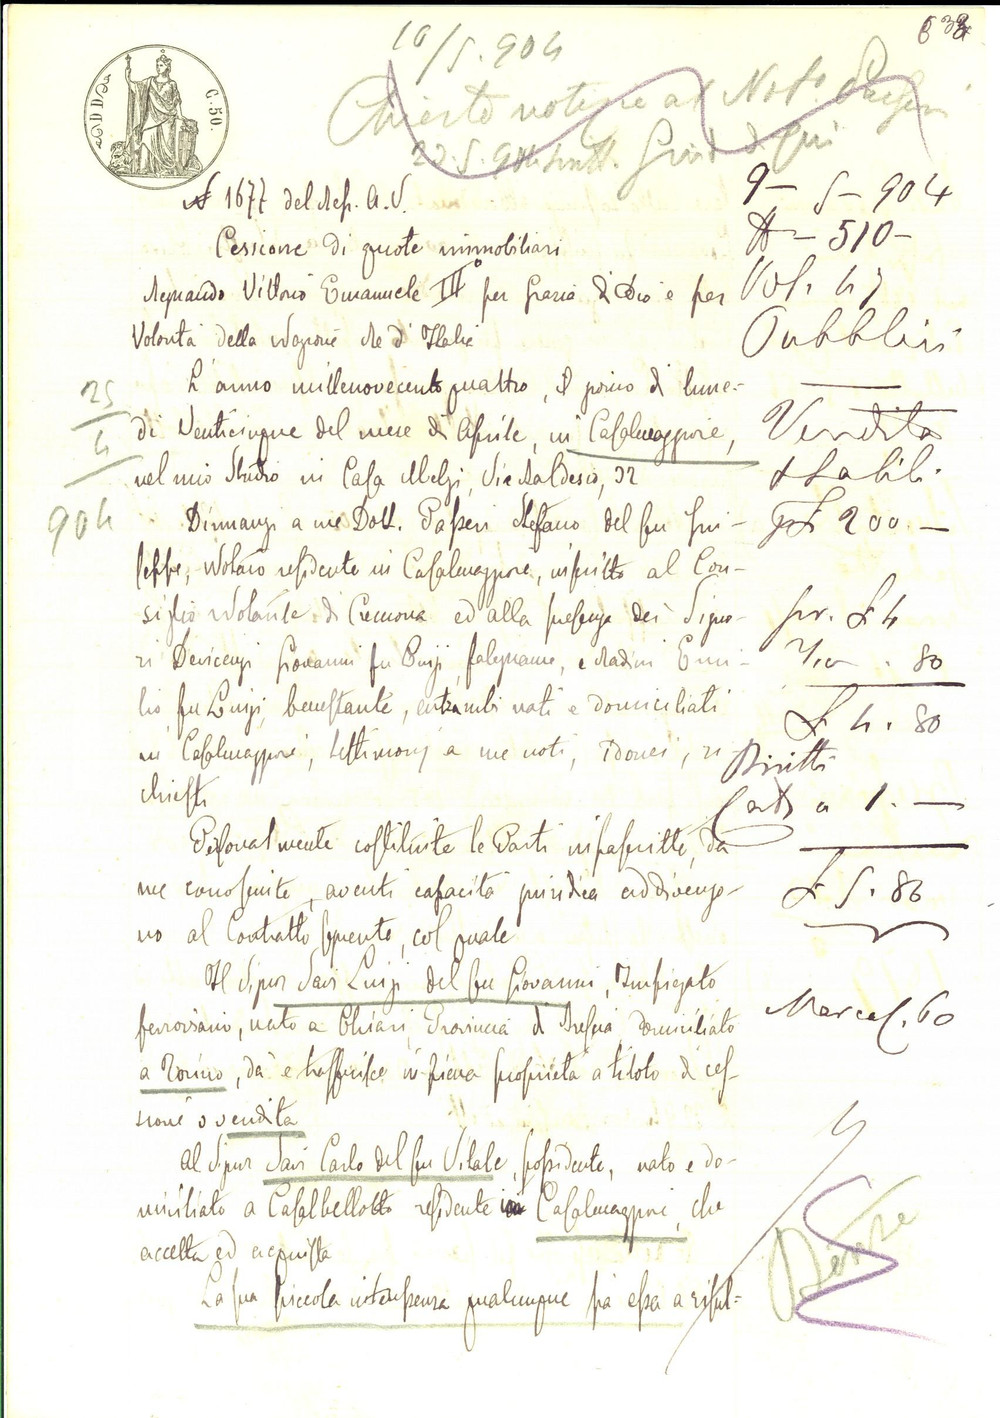 10/5.904
Chiesto notizie al Not.º Passeri
22.5.904
DD
C. 50.
N 1677 del Rep. A. V.
Cessione di quote immobiliari
Regnando Vittorio Emanuele IIIº per Grazia di Dio e per
Volontà della Nazione Re d'Italia
L'anno millenovecentoquattro, il giorno di lune-
di Venticinque del mese di Aprile, in Casalmaggiore,
nel mio Studio in Casa Melzi, Via Baldesio, 32
Dinnanzi a me Dott. Passeri Stefano del fu Giu-
seppe, Notaro residente in Casalmaggiore, inscritto al Con-
siglio Notarile di Cremona ed alla presenza dei Signo-
ri Devicenzi Giovanni fu Luigi, falegname, e Madini Emi-
lio fu Luigi, benestante, entrambi nati e domiciliati
in Casalmaggiore, testimonj a me noti, idonei, ri
chiesti
Personalmente costituite le Parti infrascritte, da
me conosciute, aventi capacità giuridica addivengo-
no al Contratto seguente, col quale
Il Signor Savi Luigi del fu Giovanni, Impiegato
ferroviario, nato a Chiari, Provincia di Brescia, domiciliato
a Torino, dà e trasferisce in piena proprietà a titolo di ces-
sione o vendita
Al Signor Savi Carlo del fu Vitale, possidente, nato e do-
miciliato a Casalbellotto residente in Casalmaggiore, che
accetta ed acquista
La sua piccola interessenza qualunque sia essa a risul-
25
4
904
9 - 5 - 904
N - 510 -
Vol. 47
Pubblici
Vendita
Stabili
£ 200 -
pr. £ 4
. 80
£ 4. 80
Diritti
Carta a 1. -
£ 5. 80
Marca £. 60